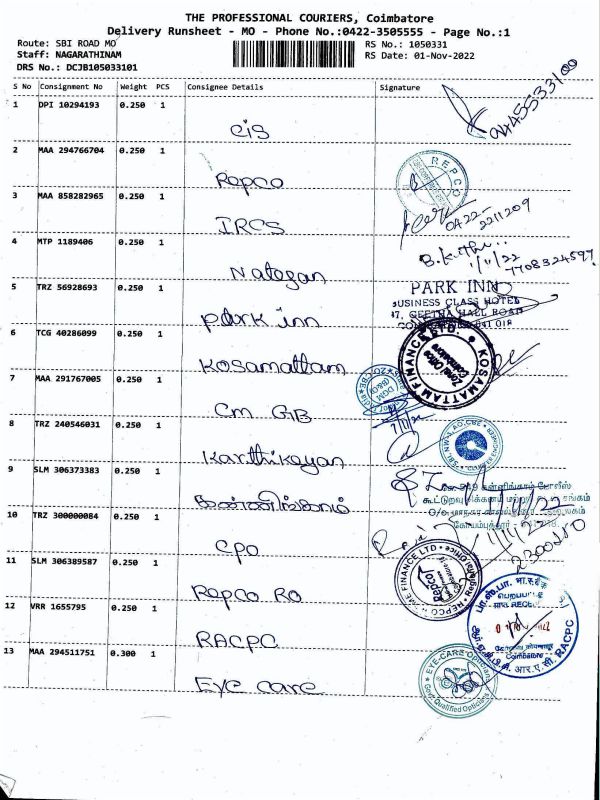 THE PROFESSIONAL COURIERS, Coimbatore
Delivery Runsheet - MO - Phone No.:0422-3505555 - Page No.:1
Route: SBI ROAD MO
RS No.: 1050331
Staff: NAGARATHINAM
RS Date: 01-Nov-2022
DRS No.: DCJB105033101
S No Consignment No Weight PCS Consignee Details Signature
1 DPI 10294193 0.250 1
CIS
2 MAA 294766704 0.250 1
Repco
REPCO
3 MAA 858282965 0.250 1
IRCS
0422-2211209
4 MTP 1189406 0.250 1
Natesan
1/11/22
7708324597
5 TRZ 56928693 0.250 1
Park inn
PARK INN
BUSINESS CLASS HOTEL
GEETHA HALL ROAD
6 TCG 40286099 0.250 1
Kosamattam
KOSAMATTAM FINANCE LTD.
Zonal Office
Coimbatore
7 MAA 291767005 0.250 1
Cm GB
8 TRZ 240546031 0.250 1
Karthikeyan
9 SLM 306373383 0.250 1
10 TRZ 300000084 0.250 1
CPO
2300250
11 SLM 306389587 0.250 1
Repco RO
REPCO HOME FINANCE LTD
12 VRR 1655795 0.250 1
RACPC
RACPC
Coimbatore
13 MAA 294511751 0.300 1
Eye care
EYE-CARE Opticians
Govt. Qualified Opticians